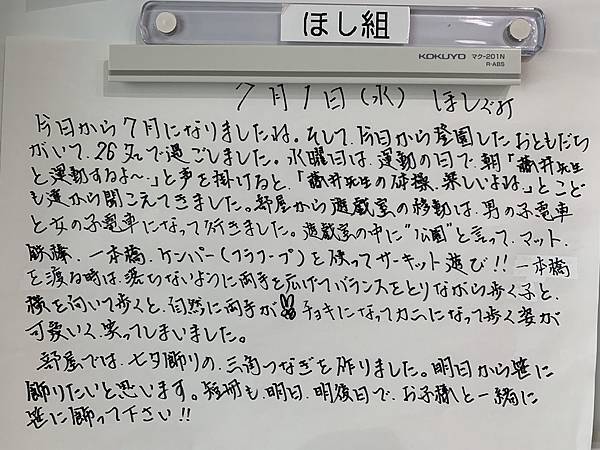 ほし組
KOKUYO マク-201N
R-ABS
7月1日(水) ほしぐみ
今日から7月になりましたね。そして、今日から登園したおともだち
がいて、26名で過ごしました。水曜日は、運動の日で、朝「藤井先生
と運動するよ~。」と声を掛けると、「藤井先生の体操、楽しいよね。」とこど
も達から聞こえてきました。部屋から遊戯室の移動は、男の子電車
と女の子電車になって行きました。遊戯室の中に"公園"と言って、マット、
一本橋、ケンパー(フラフープ)を使ってサーキット遊び!! 一本橋
を渡る時は、落ちないように両手を広げてバランスをとりながら歩く子と、
横を向いて歩くと、自然に両手が✌チョキになってカニになって歩く姿が
可愛いく、笑ってしまいました。
部屋では、七夕飾りの、三角つなぎを作りました。明日から笹に
飾りたいと思います。短冊も、明日、明後日で、お子様と一緒に
笹に飾って下さい!!